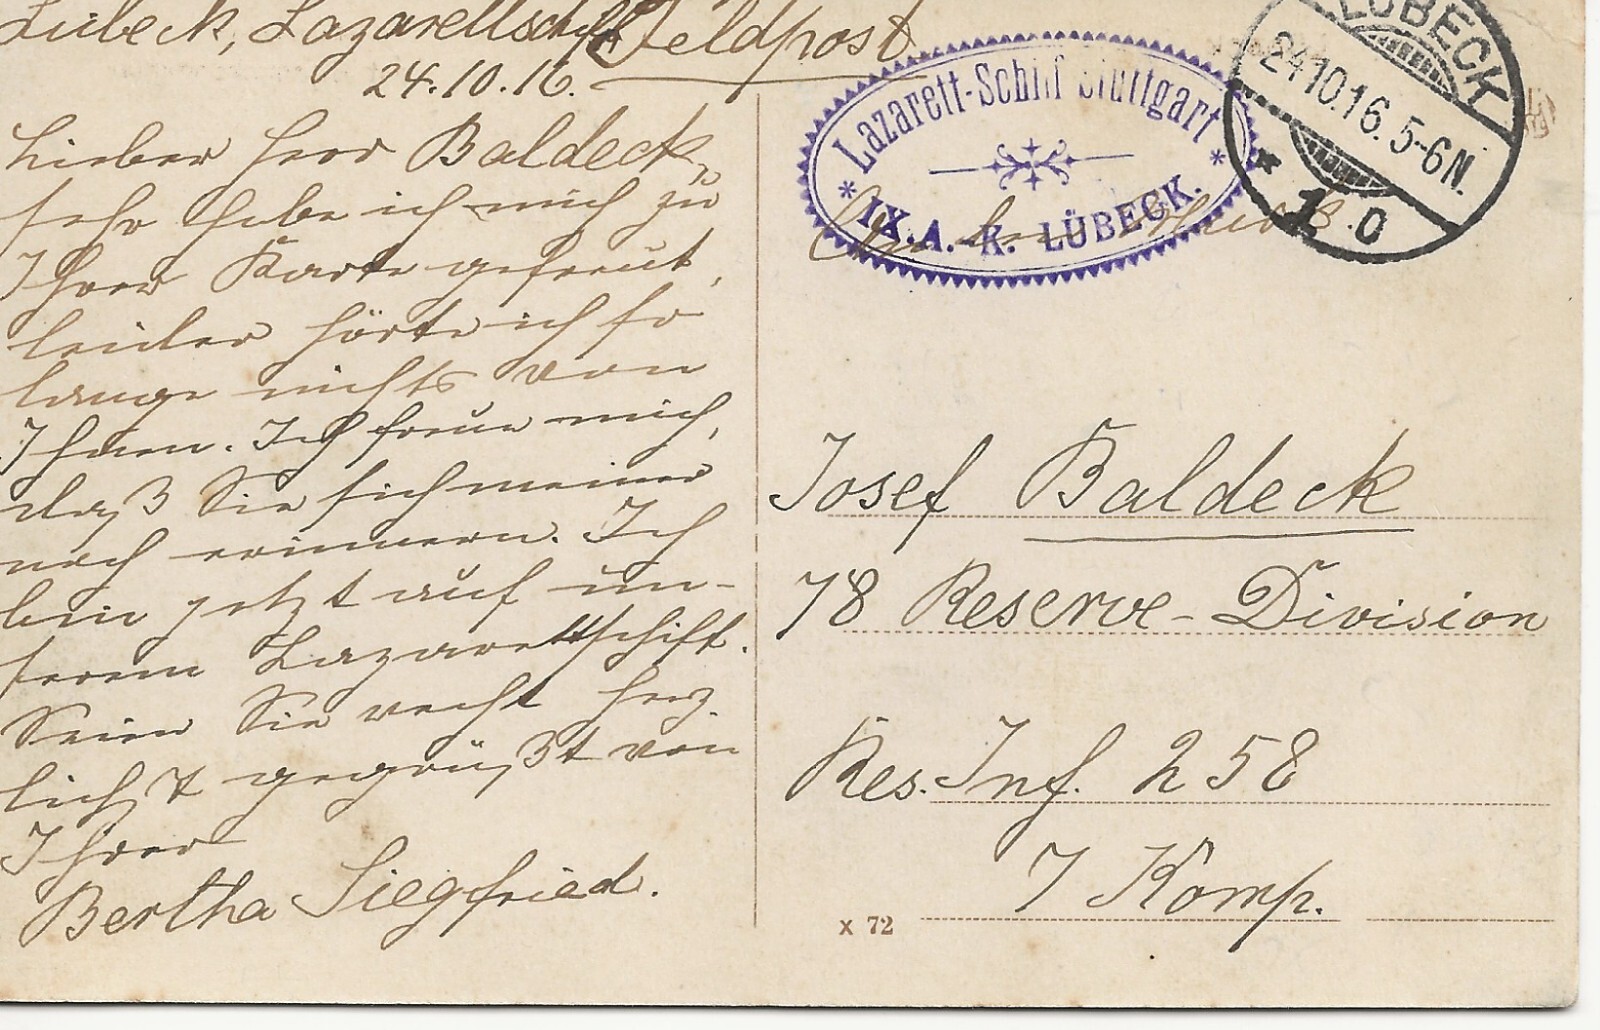 Lübeck, Lazarettschiff
Feldpost
24.10.16.
Lieber Herr Baldeck,
sehr habe ich mich zu
Ihrer Karte gefreut,
leider hörte ich so
lange nichts von
Ihnen. Ich freue mich,
daß Sie sich meiner
noch erinnern. Ich
bin jetzt auf un-
serem Lazarettschiff.
Seien Sie recht herz-
lichst gegrüßt von
Ihrer
Bertha Siegfried.
Lazarett-Schiff Stuttgart
IX. A. K. LÜBECK.
LÜBECK
24.10.16. 5-6N.
* 1.0
Josef Baldeck
78 Reserve-Division
Res. Inf. 258
7 Komp.
X 72